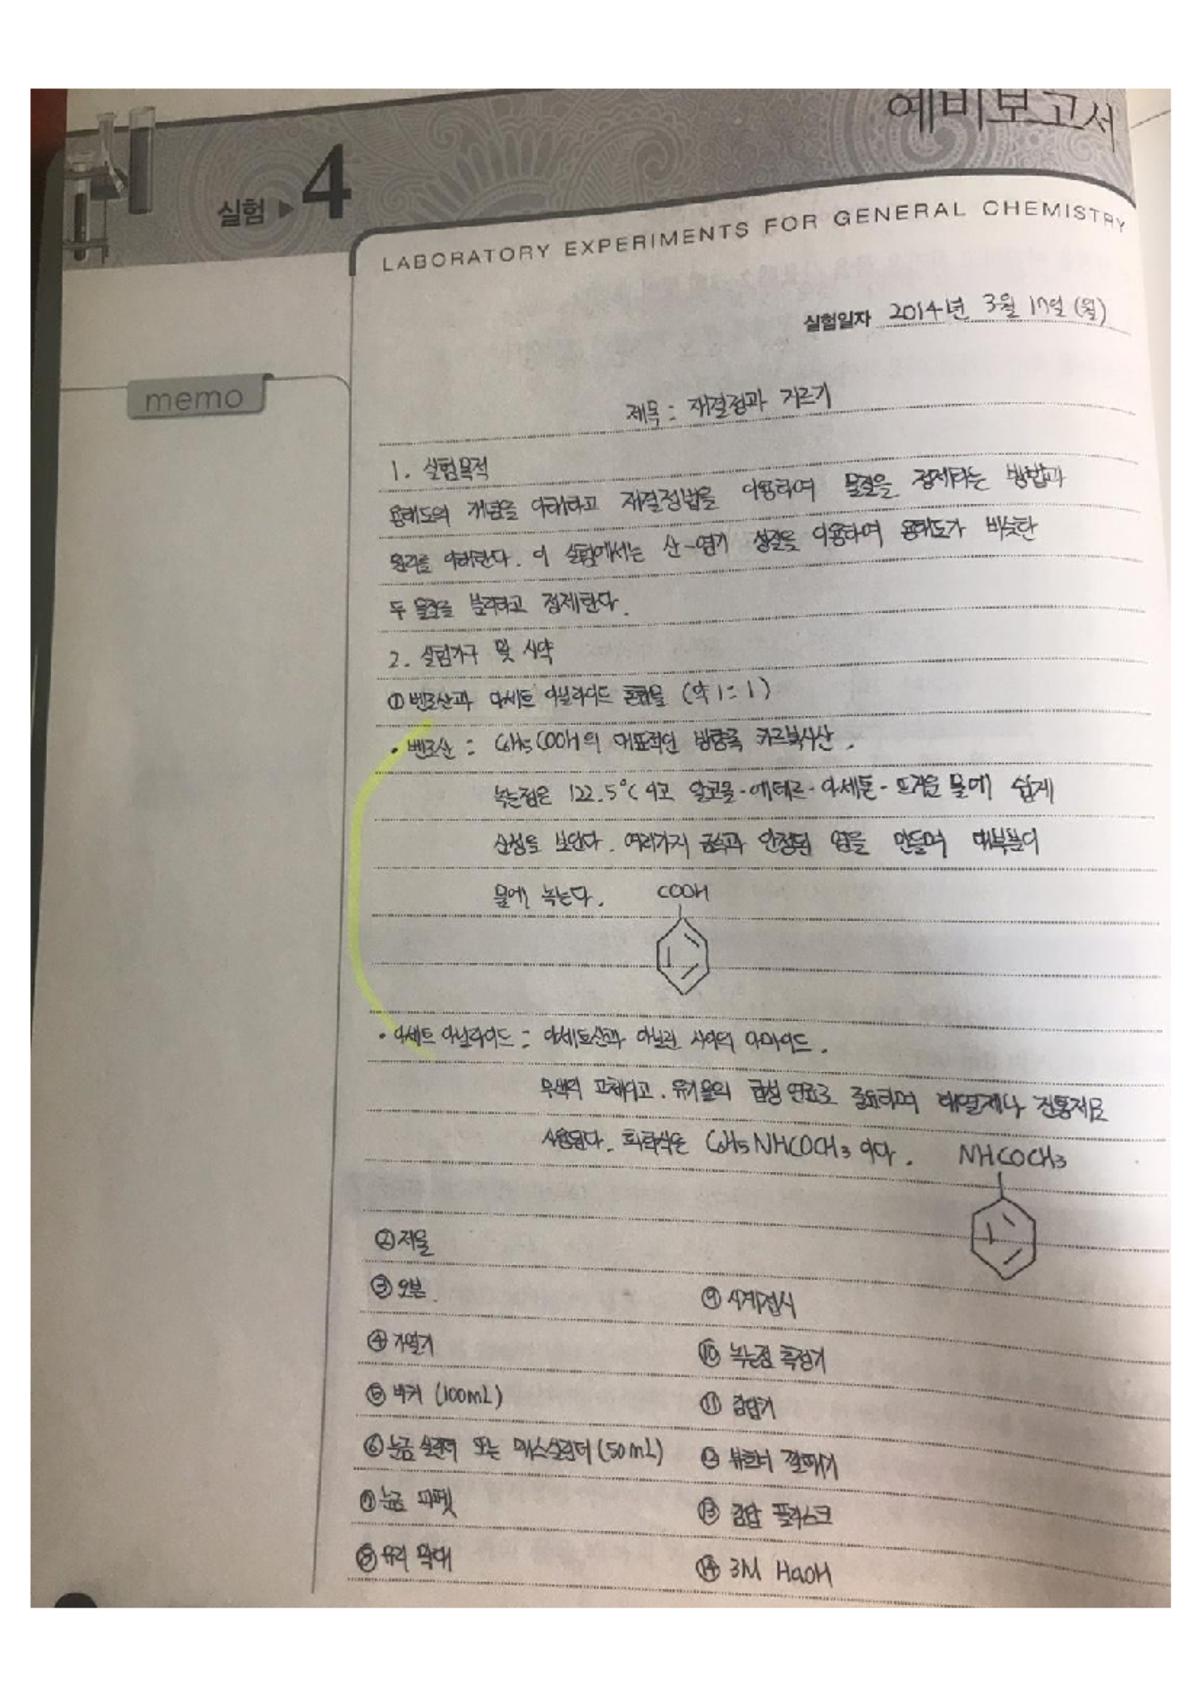 예비보고서
실험 ▶ 4
LABORATORY EXPERIMENTS FOR GENERAL CHEMISTRY
실험일자 2014년 3월 17일 (월)
memo
제목 : 재결정과 거르기
1. 실험목적
용해도의 개념을 이해하고 재결정법을 이용하여 물질을 정제하는 방법과
원리를 이해한다. 이 실험에서는 산-염기 성질을 이용하여 용해도가 비슷한
두 물질을 분리하고 정제한다.
2. 실험기구 및 시약
① 벤조산과 아세트 아닐라이드 혼합물 (약 1:1)
• 벤조산 : C6H5COOH의 대표적인 방향족 카르복시산.
녹는점은 122.5°C 이고 알코올·에테르·아세톤·뜨거운 물에 쉽게
산성을 보인다. 여러가지 금속과 안정된 염을 만들며 대부분이
물에 녹는다.
COOH
• 아세트 아닐라이드 : 아세트산과 아닐린 사이의 아마이드.
무색의 고체이고. 유기물의 합성 원료로 중요하며 해열제나 진통제로
사용된다. 화학식은 C6H5NHCOCH3 이다.
NHCOCH3
② 저울
③ 오븐
④ 가열기
⑤ 비커 (100mL)
⑥ 눈금 실린더 또는 매스실린더 (50mL)
⑦ 눈금 피펫
⑧ 유리 막대
⑨ 시계접시
⑩ 녹는점 측정기
⑪ 감압기
⑫ 뷰흐너 깔때기
⑬ 감압 플라스크
⑭ 3M NaOH